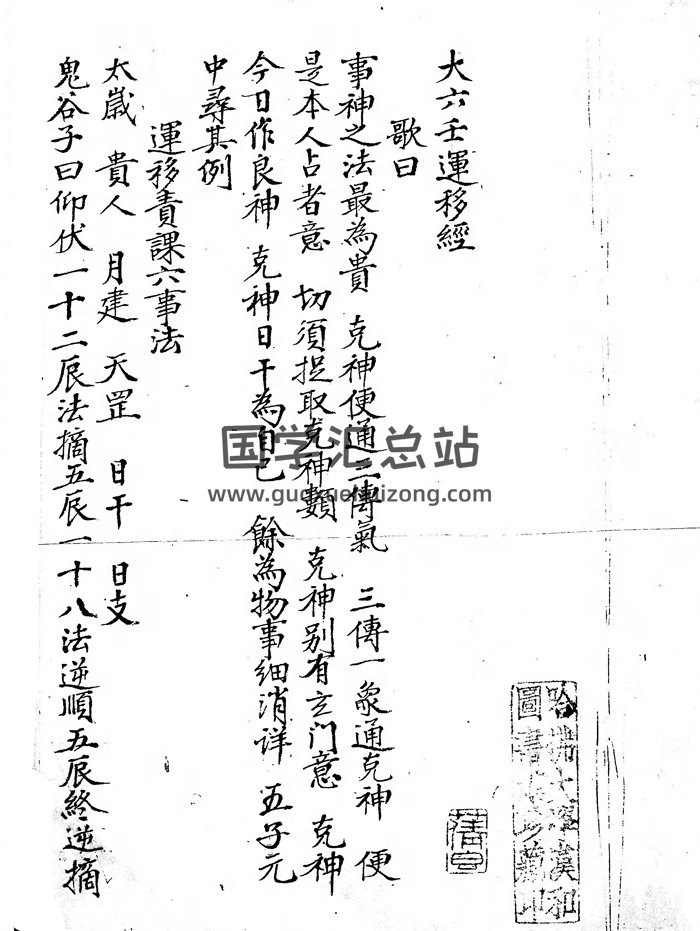 大六壬運移經
歌曰
事神之法最為貴 克神便通三傳氣 三傳一象通克神 便
是本人占者意 切須捉取克神類 克神別有玄门意 克神
今日作良神 克神日干為自己 餘為物事細消详 五子元
中尋其例
運移責課六事法
太歲 貴人 月建 天罡 日干 日支
鬼谷子曰仰伏一十二辰法摘五辰一十八法逆順五辰終逆摘
国学汇总站
www.guoxuehuizong.com
哈佛大學漢和
圖書館珍藏印